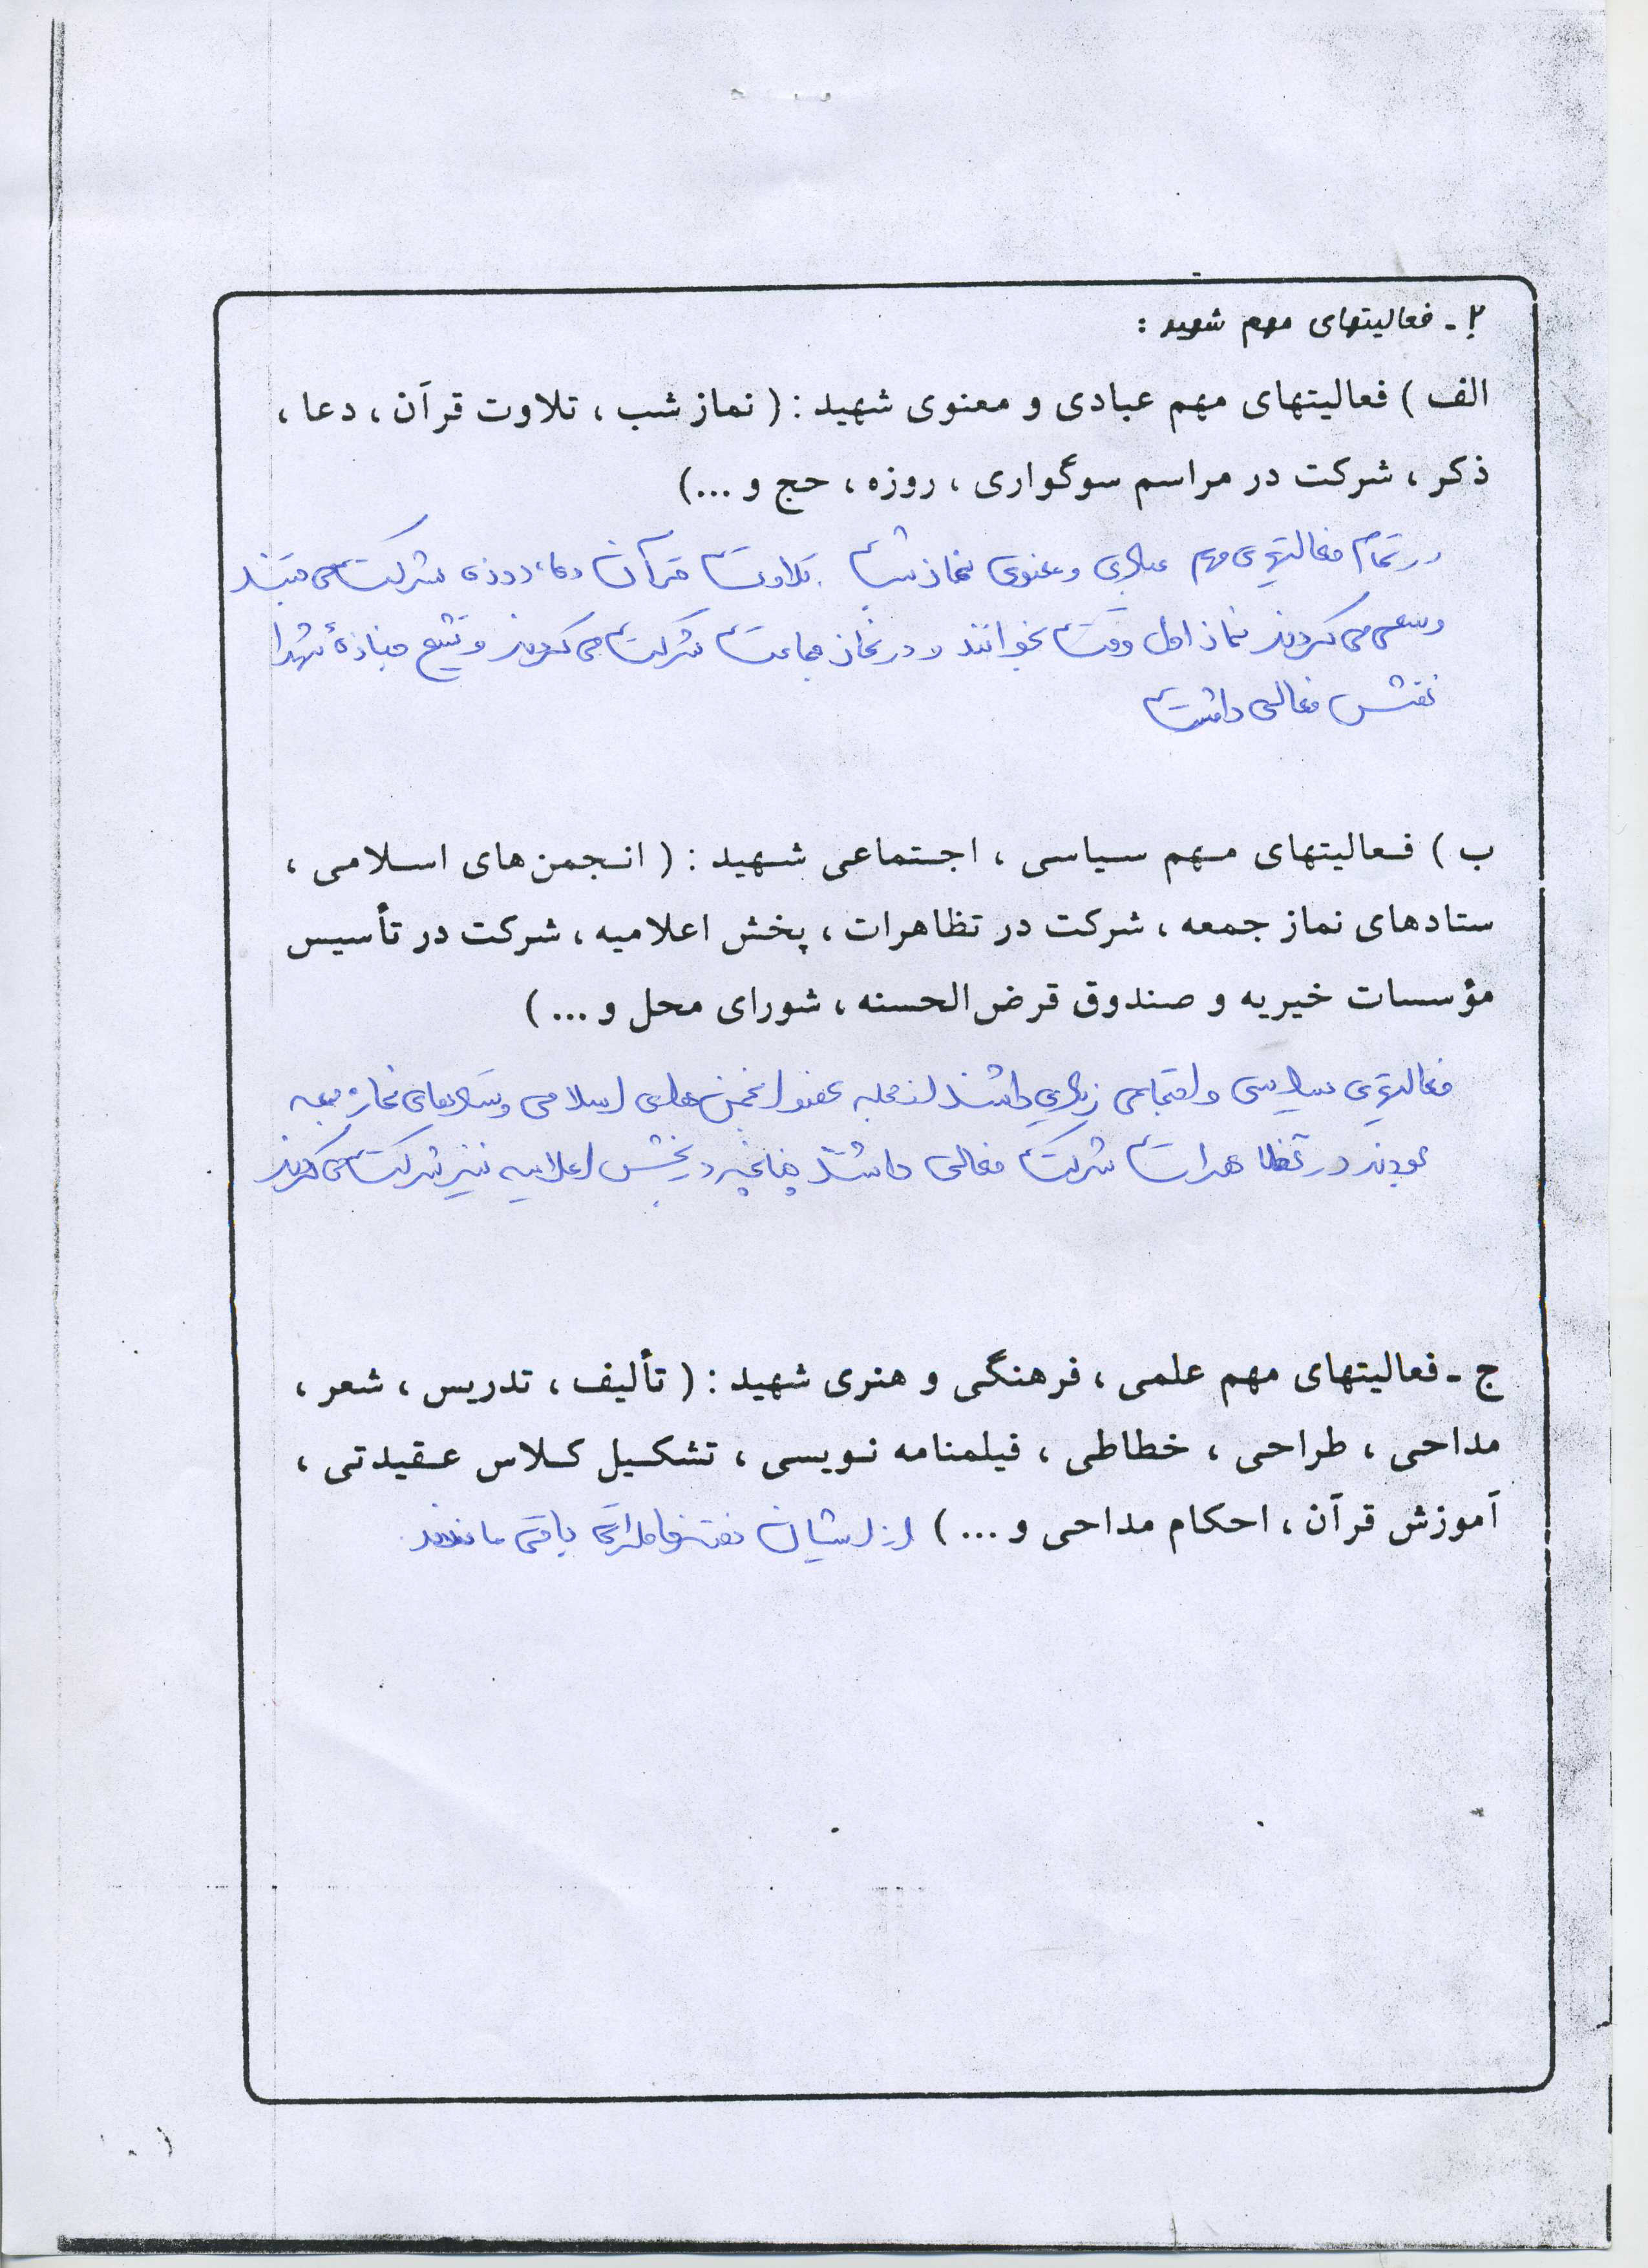 ۲ ـ فعالیتهای مهم شهید :
الف ) فعالیتهای مهم عبادی و معنوی شهید : ( نماز شب ، تلاوت قرآن ، دعا ،
ذکر ، شرکت در مراسم سوگواری ، روزه ، حج و ...)
در تمام فعالیتهای مهم عبادی و معنوی نماز شب ، تلاوت قرآن دعا، روزه شرکت می
و سعی می کردند نماز اول وقت بخوانند و در نماز جماعت شرکت می کردند و تشیع جنازهٔ شهدا
نقش فعالی داشت
ب ) فعالیتهای مهم سیاسی ، اجتماعی شهید : ( انجمن های اسلامی ،
ستادهای نماز جمعه ، شرکت در تظاهرات ، پخش اعلامیه ، شرکت در تأسیس
مؤسسات خیریه و صندوق قرض الحسنه ، شورای محل و ... )
فعالیتهای سیاسی و اجتماعی زیادی داشتند از جمله عضو انجمن های اسلامی و ستادهای نماز جمعه
بودند در تظاهرات شرکت فعالی داشتند چنانچه در پخش اعلامیه نیز شرکت می کردند
ج ـ فعالیتهای مهم علمی ، فرهنگی و هنری شهید : ( تألیف ، تدریس ، شعر ،
مداحی ، طراحی ، خطاطی ، فیلمنامه نویسی ، تشکیل کلاس عقیدتی ،
آموزش قرآن ، احکام مداحی و ... ) از ایشان دفتر خاطراتی باقی مانده